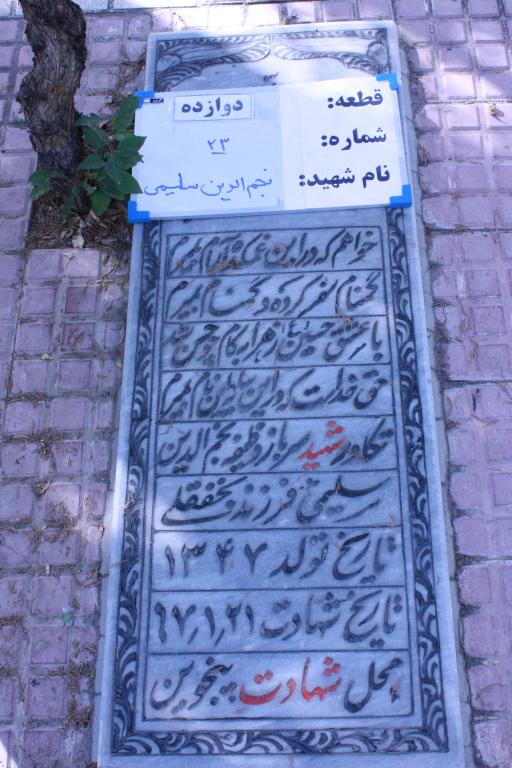 قطعه: دوازده
شماره: ۲۳
نام شهید: نجم الدین سلیمی
خواهم که در این غمکده آرام بمیرم
گمنام سفر کرده و گمنام بمیرم
با عشق حسین
حق خداست که در این نام بمیرم
تکاور شهید سرباز وظیفه نجم الدین
سلیمی فرزند نجفقلی
تاریخ تولد ۱۳۴۷
تاریخ شهادت ۶۷٫۱٫۲۱
محل شهادت: پنجوین